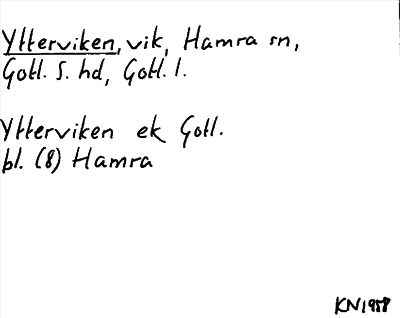 Ytterviken, vik, Hamra sn,
Gotl. S. hd, Gotl. l.
Ytterviken ek Gotl.
bl. (8) Hamra
KN 1958